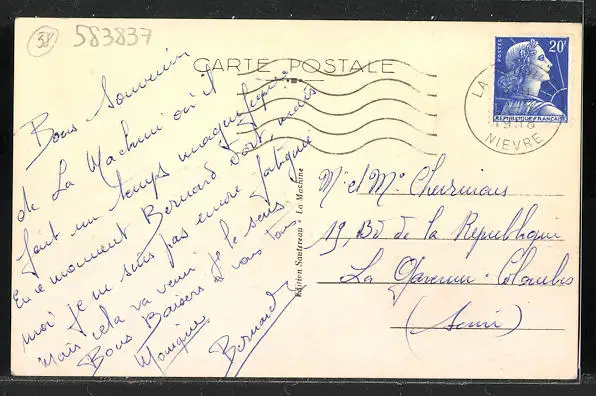 58.
583837
CARTE POSTALE
POSTES
20f
REPUBLIQUE FRANÇAISE
LA
1958
NIEVRE
Bons Souvenirs
de La Machine où il
fait un temps magnifique.
En ce moment Bernard dort, mais
moi je ne suis pas encore fatiguée
Mais cela va venir je le sens.
Bons Baisers à vous tous.
Monique
Bernard
Edition Sautereau - La Machine
Mr et Me
19, Bd de la République
La Garenne-Colombes
(Seine)